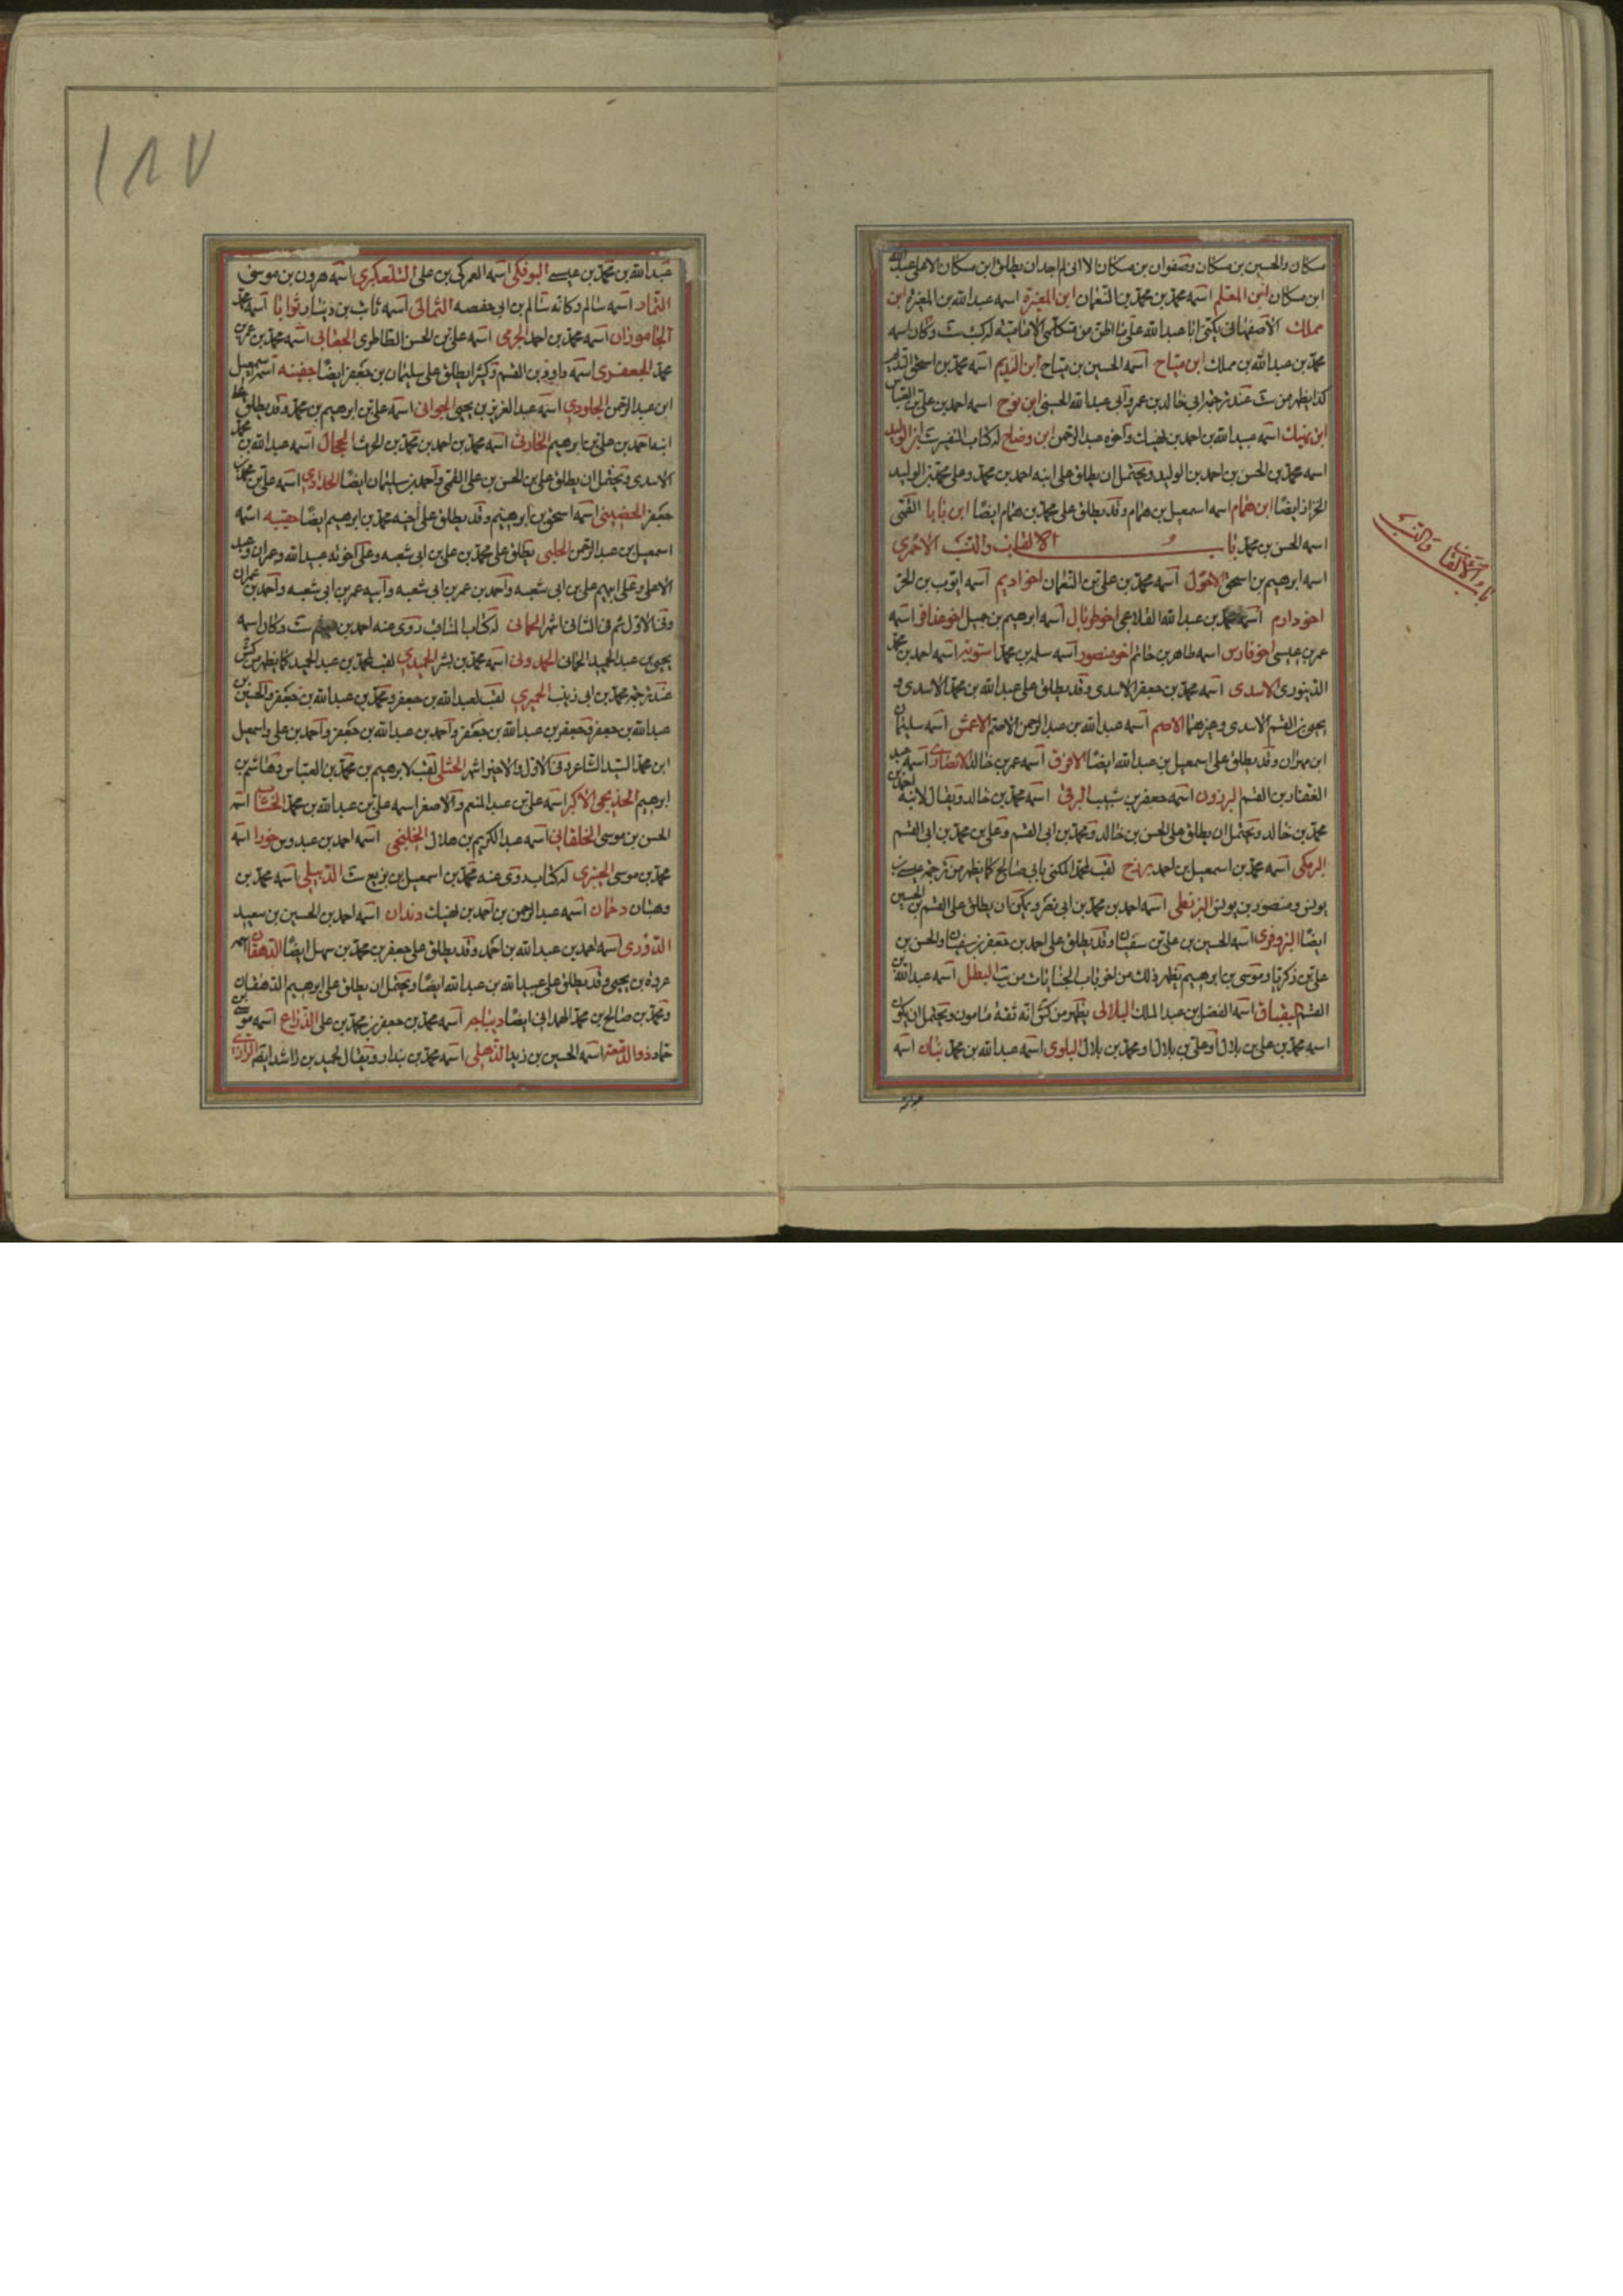 مسكان والحسين بن مسكان وصفوان بن مسكان الا انى لم اجد ان يطلق ابن مسكان الا على عبد الله
ابن مسكان ابن المعلم اسمه محمد بن محمد بن النعمان ابن المغيرة اسمه عبد الله بن المغيرة ابن
مملك الاصفهانى يكنى ابا عبد الله على ما اظن من متكلمى الامامية له كتب ست وكان اسمه
محمد بن عبد الله بن مملك ابن مياح اسمه الحسين بن مياح ابن النديم اسمه محمد بن اسحق النديم
كذا يظهر من ست عند ترجمة ابى خالد بن عمرو ابى عبد الله الحسينى ابن نوح اسمه احمد بن على بن العباس
ابن نهيك اسمه عبيد الله بن احمد بن نهيك واخوه عبد الرحمن ابن وضاح له كتاب التفسير ست ابن الوليد
اسمه محمد بن الحسن بن احمد بن الوليد ويحتمل ان يطلق على ابنه احمد بن محمد وعلى محمد بن الوليد
الخزاز ايضا ابن همام اسمه اسمعيل بن همام وقد يطلق على محمد بن همام ايضا ابن بابا القمى
اسمه الحسن بن محمد باب الالقاب والنسب الاحمرى
اسمه ابرهيم بن اسحق الاحول اسمه محمد بن على بن النعمان اخو اديم اسمه ايوب بن الحر
اخو دارم اسمه محمد بن عبد الله القلاعى اخو طربال اسمه ابرهيم بن جميل اخو عذافر اسمه
عمر بن عيسى اخو فارس اسمه طاهر بن حاتم اخو منصور اسمه سلمة بن محمد استونه اسمه احمد بن محمد
الدينورى الاسدى اسمه محمد بن جعفر الاسدى وقد يطلق على عبد الله بن محمد الاسدى و
يحيى بن القسم الاسدى وغيرهما الاصم اسمه عبد الله بن عبد الرحمن الاصم الاعمش اسمه سليمان
ابن مهران وقد يطلق على اسمعيل بن عبد الله ايضا الافرق اسمه عمر بن خالد الانصارى اسمه عبد
الغفار بن القسم البرذون اسمه جعفر بن شبيب البرقى اسمه محمد بن خالد ويقال لابنه احمد بن
محمد بن خالد ويحتمل ان يطلق على الحسن بن خالد ومحمد بن ابى القسم وعلى بن محمد بن ابى القسم
البرمكى اسمه محمد بن اسمعيل بن احمد برنخ لقب لمحمد المكنى بابى صالح كما يظهر من ترجمة عيسى بن
يونس ومنصور بن يونس البزنطى اسمه احمد بن محمد بن ابى نصر ويمكن ان يطلق على القسم بن الحسين
ايضا البزوفرى اسمه الحسين بن على بن سفيان وقد يطلق على احمد بن جعفر بن سفيان والحسن بن
على بن زكريا وموسى بن ابرهيم يظهر ذلك من اخر باب الجنايات من يب البطل اسمه عبد الله بن
القسم البقباق اسمه الفضل بن عبد الملك البلالى يظهر من كش انه ثقة مامون ويحتمل ان يكون
اسمه محمد بن على بن بلال او على بن بلال او محمد بن بلال البلوى اسمه عبد الله بن محمد بنان اسمه
عبد الله
باب الالقاب والنسب
١٨٧
عبد الله بن محمد بن عيسى البوفكى اسمه العمركى بن على التلعكبرى اسمه هرون بن موسى
التمار اسمه سالم وكانه سالم بن ابى حفصه الثمالى اسمه ثابت بن دينار ثوابا اسمه محمد
الجاموزانى اسمه محمد بن احمد الجرمى اسمه على بن الحسن الطاطرى الجعابى اسمه محمد بن عمر بن
محمد الجعفرى اسمه داود بن القسم وكثيرا يطلق على سليمان بن جعفر ايضا جفينه اسمه اسمعيل
ابن عبد الرحمن الجلودى اسمه عبد العزيز بن يحيى الجوانى اسمه على بن ابرهيم بن محمد وقد يطلق على
ابنه احمد بن على بن ابرهيم الحارثى اسمه محمد بن احمد بن محمد بن الحرث الحجال اسمه عبد الله بن محمد
الاسدى ويحتمل ان يطلق على بن الحسن بن على القمى واحمد بن سليمان ايضا الحدادى اسمه على بن محمد بن
جعفر الحضينى اسمه اسحق بن ابرهيم وقد يطلق على اخيه محمد بن ابرهيم ايضا حقيبه اسمه
اسمعيل بن عبد الرحمن الحلبى يطلق على محمد بن على بن ابى شعبه وعلى اخوته عبيد الله وعمران وعبد
الاعلى وعلى ابيهم على بن ابى شعبه واحمد بن عمر بن ابى شعبه وابيه عمر بن ابى شعبه واحمد بن عمران
وفى الاول ثم فى الثانى اشهر الحمانى له كتاب المناقب روى عنه احمد بن ميثم ست وكان اسمه
يحيى بن عبد الحميد الحمانى الحمدونى اسمه محمد بن بشر الحميدى لقب لمحمد بن عبد الحميد كما يظهر من كش
عند ترجمة محمد بن ابى زينب الحميرى لقب لعبد الله بن جعفر ومحمد بن عبد الله بن جعفر والحسين بن
عبد الله بن جعفر وجعفر بن عبد الله بن جعفر واحمد بن عبد الله بن جعفر واحمد بن على واسمعيل
ابن محمد السيد الشاعر وفى الاول والاخير اشهر الختلى لقب لابرهيم بن محمد بن العباس وهاشم بن
ابرهيم الخديجى الاكبر اسمه على بن عبد المنعم والاصغر اسمه على بن عبد الله بن محمد الخشاب اسمه
الحسن بن موسى الخلقانى اسمه عبد الكريم بن هلال الخلنجى اسمه احمد بن عبدوس خوراء اسمه
محمد بن موسى الخيبرى له كتاب روى عنه محمد بن اسمعيل بن بزيع ست الدبيلى اسمه محمد بن
وهبان دحمان اسمه عبد الرحمن بن احمد بن نهيك دندان اسمه احمد بن الحسين بن سعيد
الدورى اسمه احمد بن عبد الله بن احمد وقد يطلق على جعفر بن محمد بن سهل ايضا الدهقان اسمه
عروة بن يحيى وقد يطلق على عبيد الله بن عبد الله ايضا ويحتمل ان يطلق على ابرهيم الدهقان
ومحمد بن صالح بن محمد الهمدانى ايضا ديباجه اسمه محمد بن جعفر بن محمد بن على الذراع اسمه موسى بن
حماد ذو الدمعة اسمه الحسين بن زيد الذهلى اسمه محمد بن بندار ويقال لحميد بن راشد ايضا الرازى